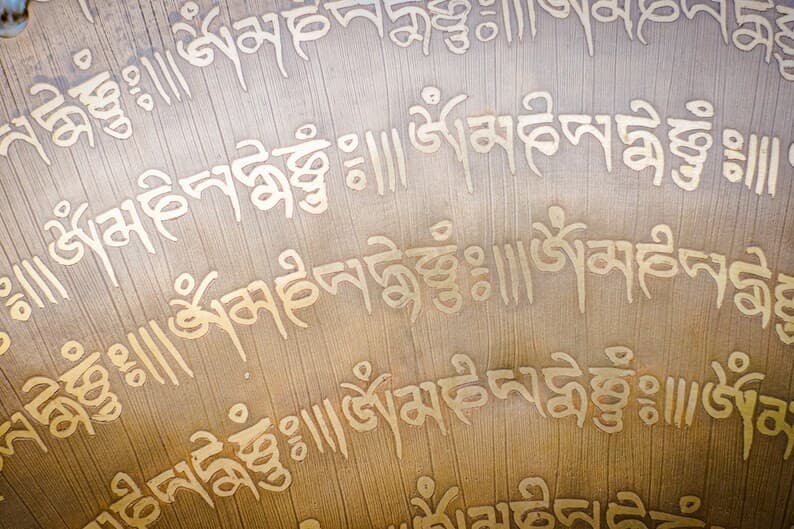 པདྨེཧཱུྃཿ །།། ཨོཾམཎིཔདྨེཧཱུྃཿ །།། ཨོཾམཎིཔདྨེཧཱུྃ
ཿ །།། ཨོཾམཎིཔདྨེཧཱུྃཿ །།། ཨོཾམཎིཔདྨེཧཱུྃཿ །།།
པདྨེཧཱུྃཿ །།། ཨོཾམཎིཔདྨེཧཱུྃཿ །།། ཨོཾམཎིཔདྨེཧཱུྃ
མཎིཔདྨེཧཱུྃཿ །།། ཨོཾམཎིཔདྨེཧཱུྃཿ །།། ཨོཾམ
ཨོཾམཎིཔདྨེཧཱུྃ